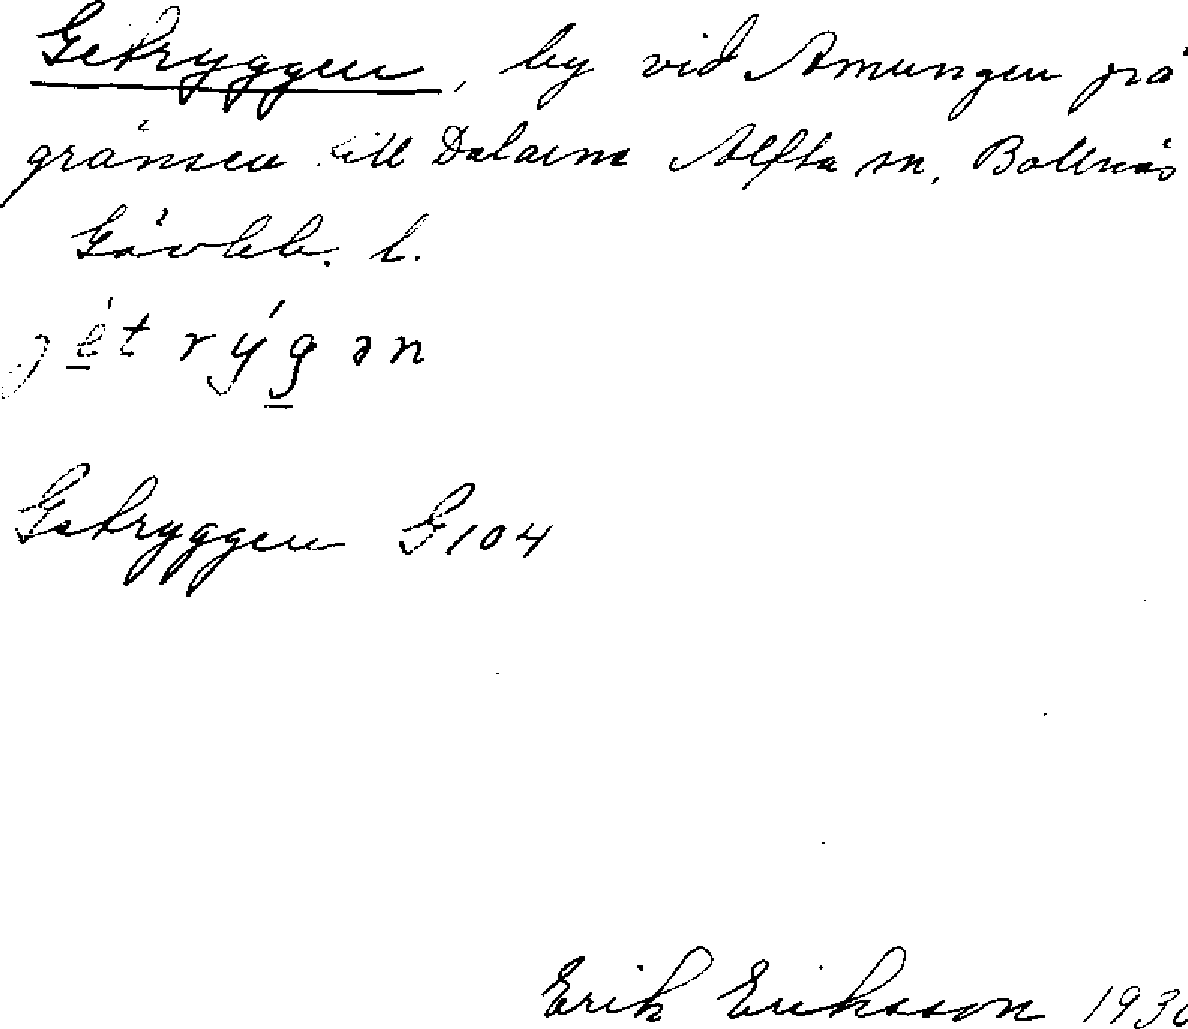 Getryggen, by vid Amungen på
gränsen till Dalarne Alfta sn, Bollnäs
Gävleb. l.
j é̠t rýg̠ ən
Getryggen G104
Erik Eriksson 193